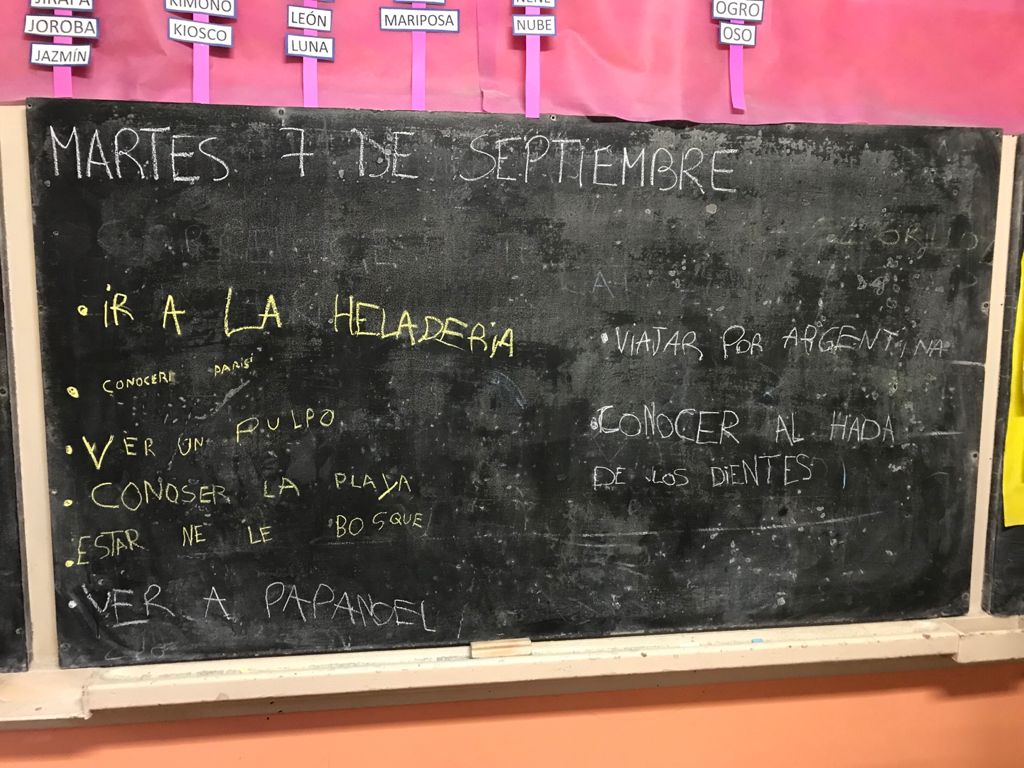 JIRAFA
JOROBA
JAZMÍN
KIMONO
KIOSCO
LEÓN
LUNA
MARIPOSA
NENE
NUBE
OGRO
OSO
MARTES 7 DE SEPTIEMBRE
• IR A LA HELADERIA
• CONOCERI PARISI
• VER UN PULPO
• CONOSER LA PLAYA
• ESTAR NE LE BOSQUE
• VER A PAPANOEL
• VIAJAR POR ARGENTINA
• CONOCER AL HADA
DE LOS DIENTES